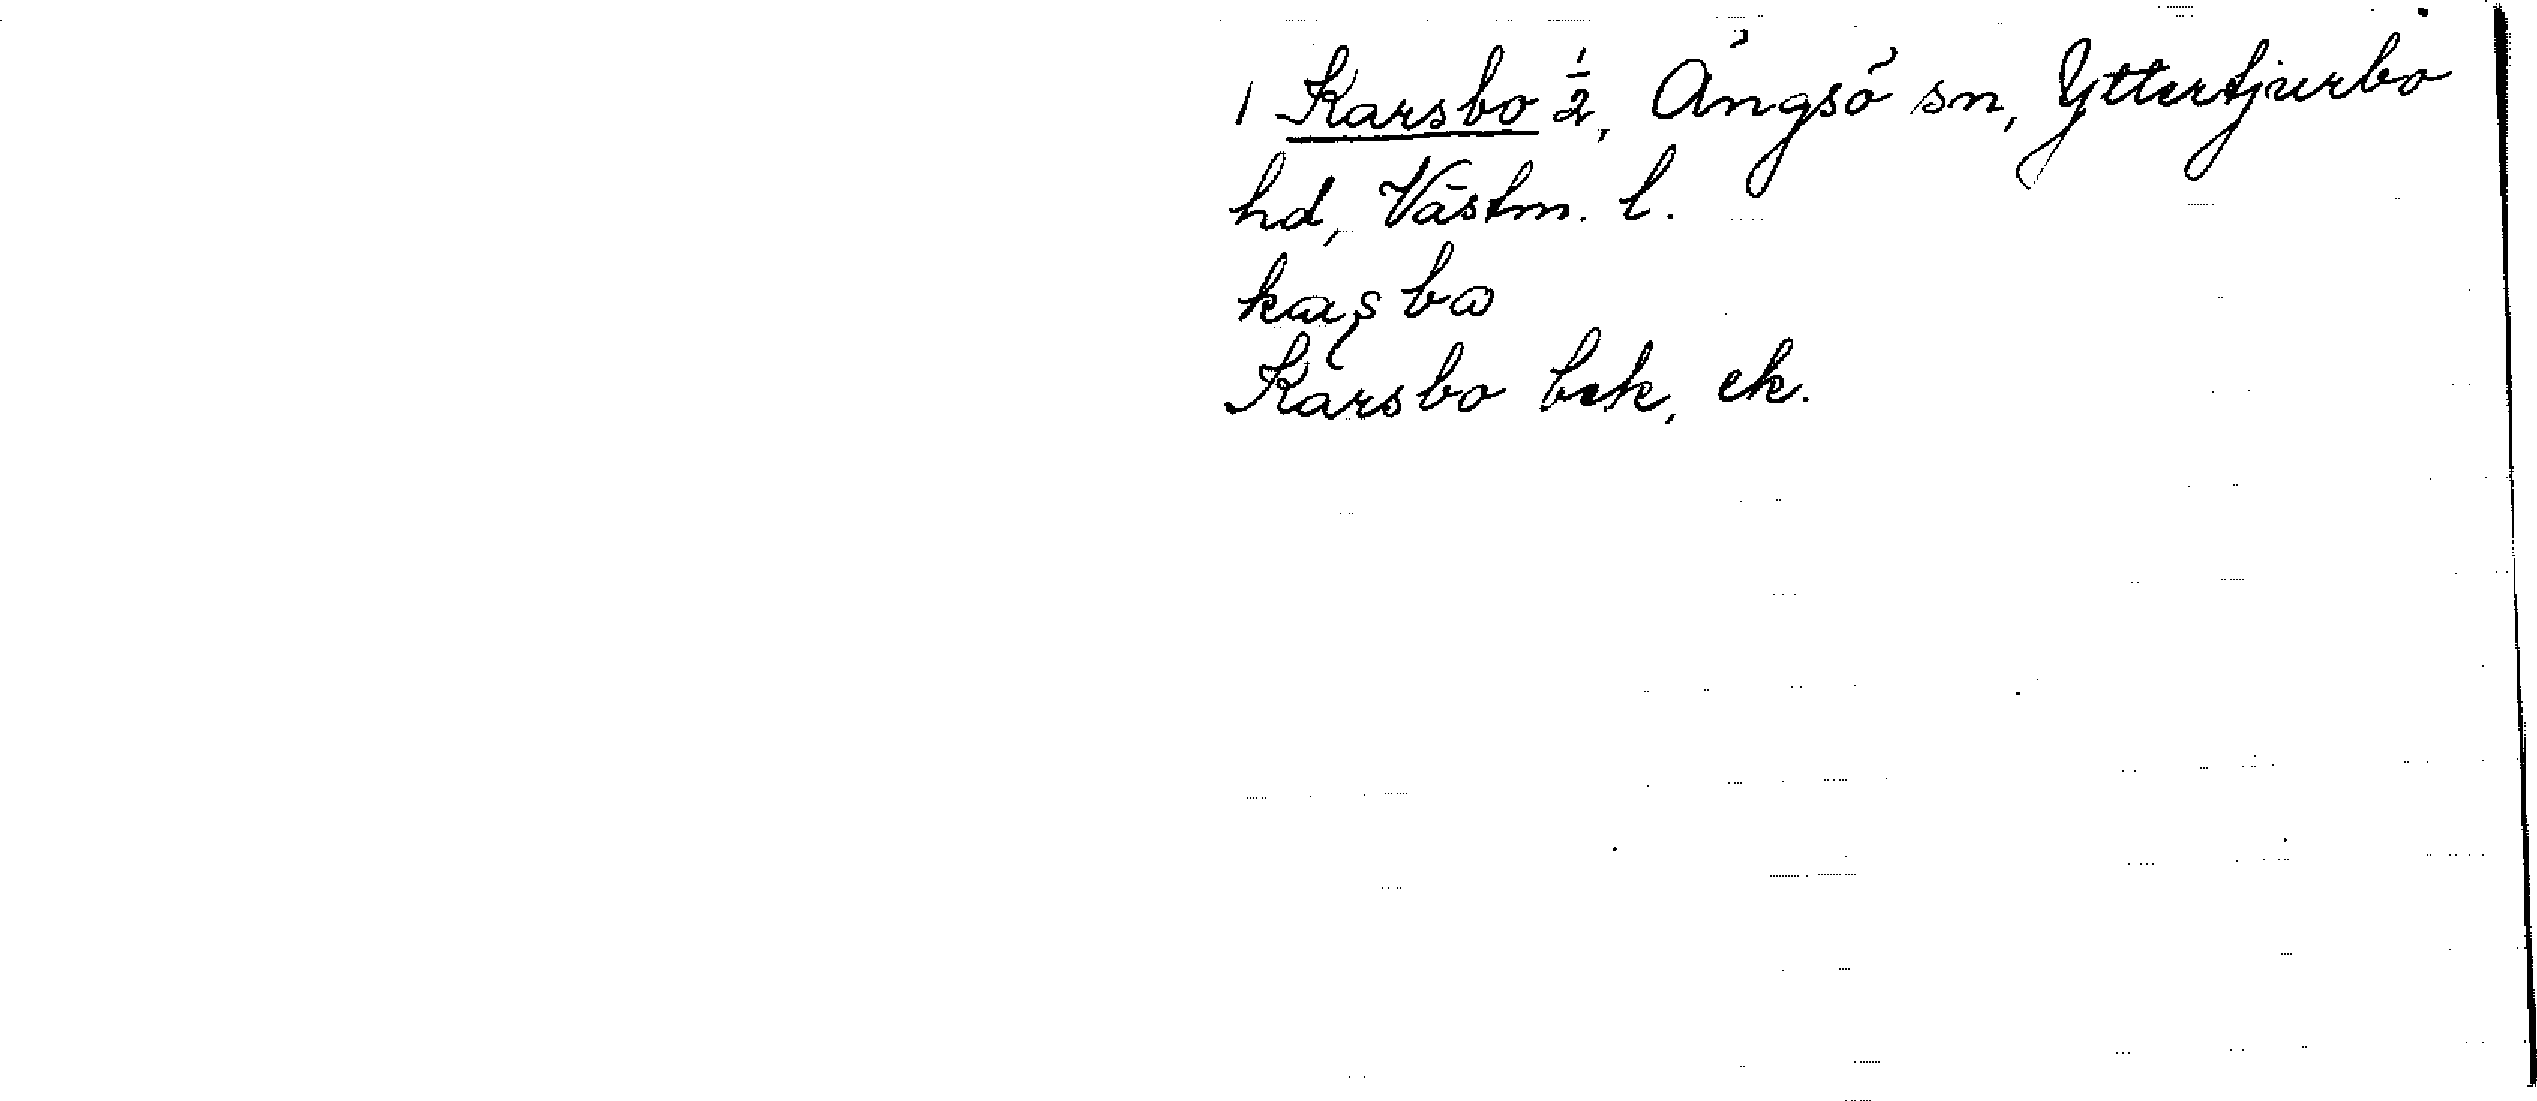 1 Karsbo ½, Ängsö sn, Yttertjurbo
hd, Västm. l.
Karsbo bek, ek.